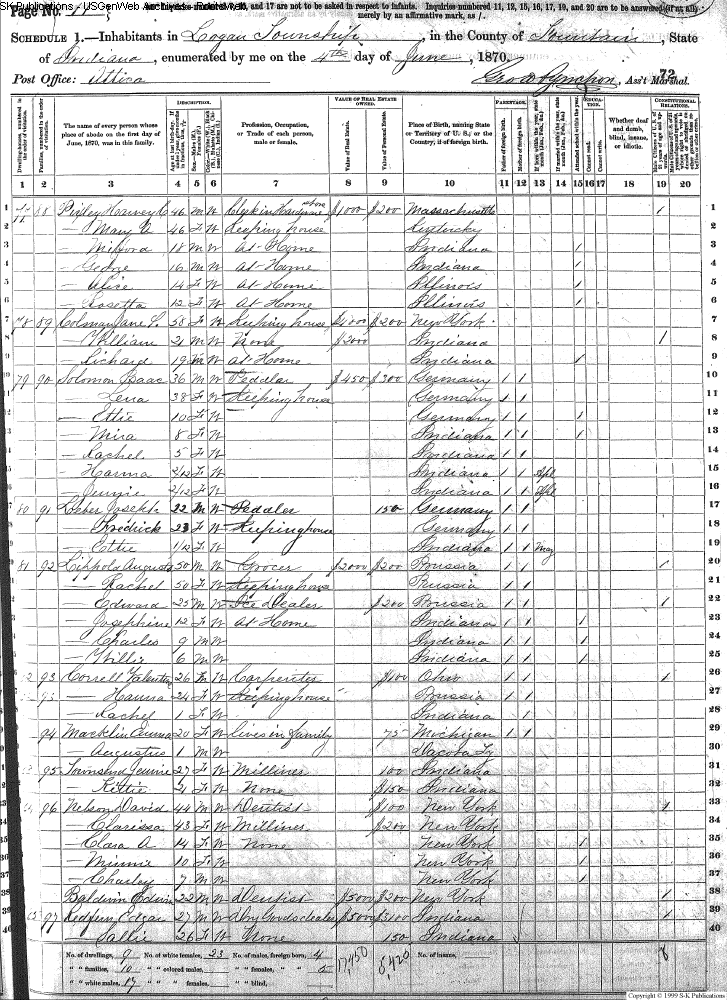 SK Publications / USGenWeb Archives
Page No. 11
and 17 are not to be asked in respect to infants. Inquiries numbered 11, 12, 15, 16, 17, 19, and 20 are to be answered (if at all)
merely by an affirmative mark, as /.
SCHEDULE 1.—Inhabitants in Logan Township, in the County of Fountain, State
of Indiana, enumerated by me on the 4th day of June, 1870.
Post Office: Attica
72
Ass't Marshal.
Dwelling-houses, numbered in the order of visitation.
Families, numbered in the order of visitation.
The name of every person whose place of abode on the first day of June, 1870, was in this family.
DESCRIPTION.
Profession, Occupation, or Trade of each person, male or female.
VALUE OF REAL ESTATE OWNED.
Value of Real Estate.
Value of Personal Estate.
Place of Birth, naming State or Territory of U. S.; or the Country, if of foreign birth.
PARENTAGE.
Father of foreign birth.
Mother of foreign birth.
Attended school within the year.
EDUCATION.
Cannot read.
Cannot write.
Whether deaf and dumb, blind, insane, or idiotic.
CONSTITUTIONAL RELATIONS.
1 2 3 4 5 6 7 8 9 10 11 12 13 14 15 16 17 18 19 20
1 77 88 Pixley Harvey C 46 M W Clerk in Hardware store $1000 $200 Massachusetts / 1
2 — Mary A 46 F W Keeping house Kentucky 2
3 — Milford 18 M W At Home Indiana / 3
4 — George 16 M W At Home Indiana / 4
5 — Alice 14 F W At Home Illinois / 5
6 — Rosetta 12 F W At Home Illinois / 6
7 78 89 Colman Jane 58 F W Keeping house $4000 $200 New York 7
8 — William 21 M W None $2000 Indiana / 8
9 — Richard 19 M W At Home Indiana / 9
10 79 90 Solomon Isaac 36 M W Peddler $450 $300 Germany / / 10
11 — Lena 38 F W Keeping house Germany / / 11
12 — Ettie 10 F W Germany / / / 12
13 — Mira 8 F W Indiana / / / 13
14 — Rachel 5 F W Indiana / / 14
15 — Hanna 2/12 F W Indiana / / Apl 15
16 — Jennie 2/12 F W Indiana / / Apl 16
17 80 91 Leber Joseph 22 M W Peddler 150 Germany / / 17
18 — Fredrick 23 F W Keeping house Germany / / 18
19 — Ettie 1/12 F W Indiana / / May 19
20 81 92 Lippold August 50 M W Grocer $2000 $200 Prussia / / / 20
21 — Rachel 50 F W Keeping house Prussia / / 21
22 — Edward 25 M W Ice Dealer $200 Prussia / / / 22
23 — Josephine 12 F W At Home Indiana / / / 23
24 — Charles 9 M W Indiana / / / 24
25 — Willie 6 M W Indiana / / / 25
26 93 Correll Valentine 26 M W Carpenter $100 Ohio / / / 26
27 — Hanna 24 F W Keeping house Prussia / / 27
28 — Rachel 1 F W Indiana / / 28
29 94 Macklin Emma 20 F W lives in family 75 Michigan / / 29
30 — Augustus 1 M W Dacota Ty 30
31 95 Townsend Jennie 27 F W Milliner 100 Indiana 31
32 — Kittie 4 F W None $150 Indiana 32
33 96 Nelson David 44 M W Dentist $100 New York / 33
34 — Clarissa 43 F W Milliner $200 New York 34
35 — Clara A 14 F W None New York / 35
36 — Minnie 10 F W New York / 36
37 — Charley 7 M W New York / 37
38 Baldwin Edwin 22 M W Dentist $5000 $200 New York / 38
39 97 Redfern Edgar 27 M W Dry Goods dealer $5000 $3100 Indiana / 39
40 — Sallie 26 F W None 150 Indiana 40
No. of dwellings, 9 No. of white females, 23 No. of males, foreign born, 4 17,450 No. of insane, 8
" " families, 10 " " colored males, " " females, " "
" " white males, 17 " " " females, " " blind,
Copyright © 1999 S-K Publications